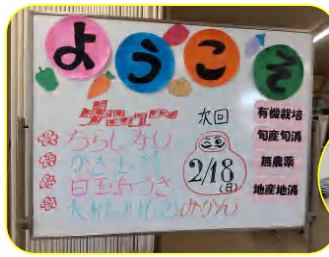 ようこそ
メニュー
ちらしずし
かきたま汁
白玉あづき
みかん
次回
2/18
(日)
有機栽培
旬産旬消
無農薬
地産地消